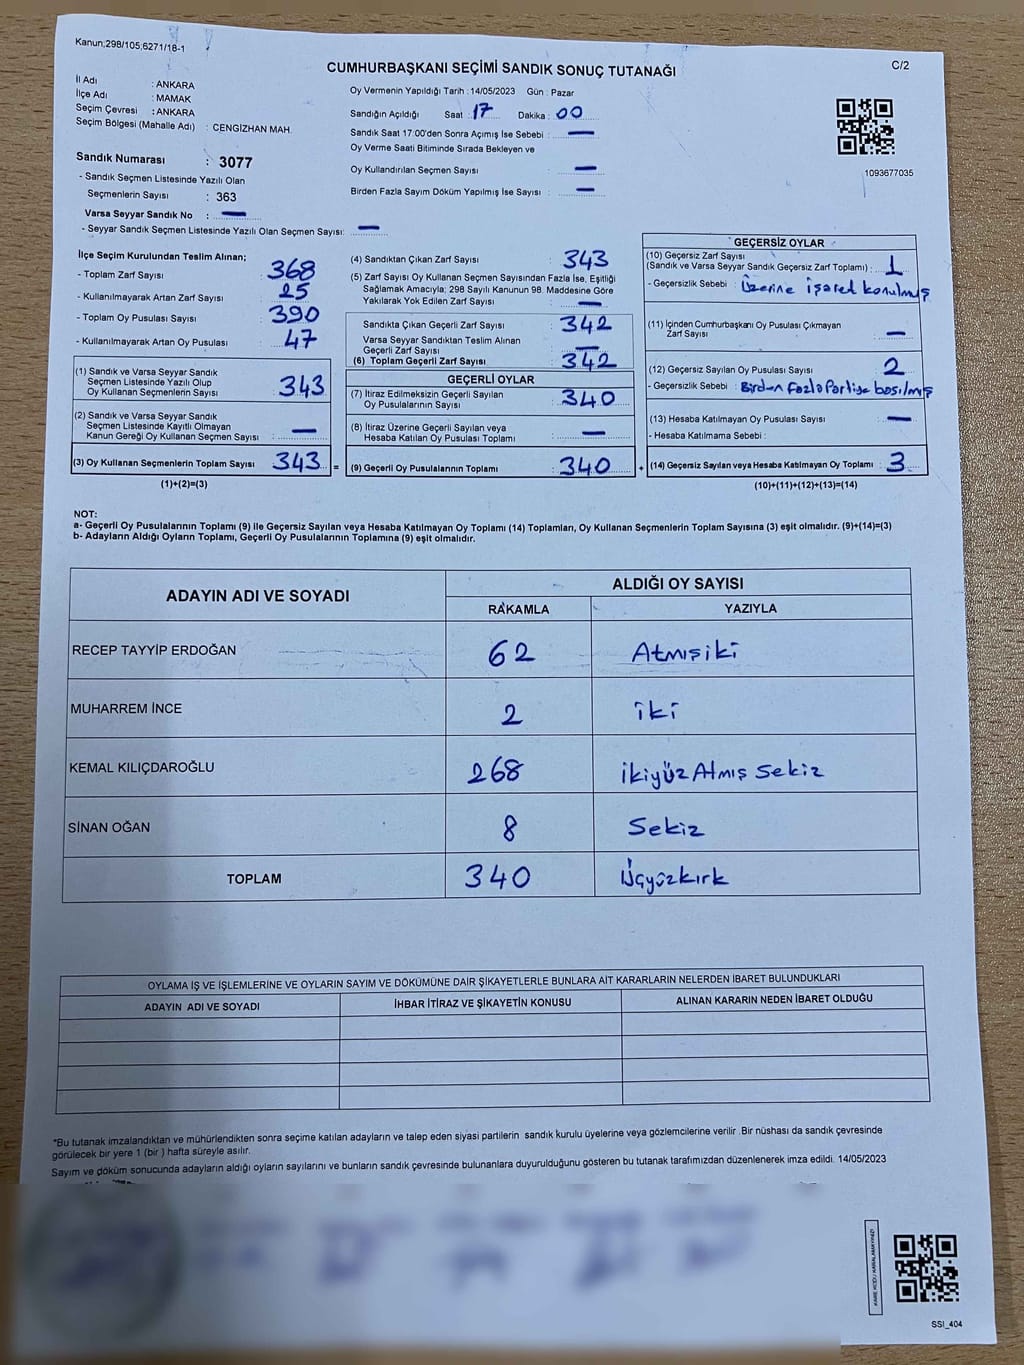 Kanun;298/105;6271/18-1
CUMHURBAŞKANI SEÇİMİ SANDIK SONUÇ TUTANAĞI
C/2
İl Adı : ANKARA
İlçe Adı : MAMAK
Seçim Çevresi : ANKARA
Seçim Bölgesi (Mahalle Adı) : CENGİZHAN MAH.
Sandık Numarası : 3077
- Sandık Seçmen Listesinde Yazılı Olan
Seçmenlerin Sayısı : 363
Varsa Seyyar Sandık No : —
- Seyyar Sandık Seçmen Listesinde Yazılı Olan Seçmen Sayısı: —
Oy Vermenin Yapıldığı Tarih : 14/05/2023 Gün : Pazar
Sandığın Açıldığı Saat : 17 Dakika : 00
Sandık Saat 17:00'den Sonra Açımış İse Sebebi : —
Oy Verme Saati Bitiminde Sırada Bekleyen ve
Oy Kullandırılan Seçmen Sayısı : —
Birden Fazla Sayım Döküm Yapılmış İse Sayısı : —
1093677035
İlçe Seçim Kurulundan Teslim Alınan;
- Toplam Zarf Sayısı : 368
- Kullanılmayarak Artan Zarf Sayısı : 25
- Toplam Oy Pusulası Sayısı : 390
- Kullanılmayarak Artan Oy Pusulası : 47
(1) Sandık ve Varsa Seyyar Sandık
Seçmen Listesinde Yazılı Olup
Oy Kullanan Seçmenlerin Sayısı : 343
(2) Sandık ve Varsa Seyyar Sandık
Seçmen Listesinde Kayıtlı Olmayan
Kanun Gereği Oy Kullanan Seçmen Sayısı : —
(3) Oy Kullanan Seçmenlerin Toplam Sayısı : 343 =
(1)+(2)=(3)
(4) Sandıktan Çıkan Zarf Sayısı : 343
(5) Zarf Sayısı Oy Kullanan Seçmen Sayısından Fazla İse, Eşitliği
Sağlamak Amacıyla; 298 Sayılı Kanunun 98. Maddesine Göre
Yakılarak Yok Edilen Zarf Sayısı : —
Sandıkta Çıkan Geçerli Zarf Sayısı : 342
Varsa Seyyar Sandıktan Teslim Alınan
Geçerli Zarf Sayısı : —
(6) Toplam Geçerli Zarf Sayısı : 342
GEÇERLİ OYLAR
(7) İtiraz Edilmeksizin Geçerli Sayılan
Oy Pusulalarının Sayısı : 340
(8) İtiraz Üzerine Geçerli Sayılan veya
Hesaba Katılan Oy Pusulası Toplamı : —
(9) Geçerli Oy Pusulalarının Toplamı : 340 +
GEÇERSİZ OYLAR
(10) Geçersiz Zarf Sayısı
(Sandık ve Varsa Seyyar Sandık Geçersiz Zarf Toplamı) : 1
- Geçersizlik Sebebi : Üzerine işaret konulmuş
(11) İçinden Cumhurbaşkanı Oy Pusulası Çıkmayan
Zarf Sayısı : —
(12) Geçersiz Sayılan Oy Pusulası Sayısı : 2
- Geçersizlik Sebebi : Birden fazla Partiye basılmış
(13) Hesaba Katılmayan Oy Pusulası Sayısı : —
- Hesaba Katılmama Sebebi :
(14) Geçersiz Sayılan veya Hesaba Katılmayan Oy Toplamı : 3
(10)+(11)+(12)+(13)=(14)
NOT:
a- Geçerli Oy Pusulalarının Toplamı (9) ile Geçersiz Sayılan veya Hesaba Katılmayan Oy Toplamı (14) Toplamları, Oy Kullanan Seçmenlerin Toplam Sayısına (3) eşit olmalıdır. (9)+(14)=(3)
b- Adayların Aldığı Oyların Toplamı, Geçerli Oy Pusulalarının Toplamına (9) eşit olmalıdır.
ADAYIN ADI VE SOYADI
ALDIĞI OY SAYISI
RAKAMLA YAZIYLA
RECEP TAYYİP ERDOĞAN 62 Atmışiki
MUHARREM İNCE 2 iki
KEMAL KILIÇDAROĞLU 268 ikiyüz Atmış Sekiz
SİNAN OĞAN 8 Sekiz
TOPLAM 340 Üçyüzkırk
OYLAMA İŞ VE İŞLEMLERİNE VE OYLARIN SAYIM VE DÖKÜMÜNE DAİR ŞİKAYETLERLE BUNLARA AİT KARARLARIN NELERDEN İBARET BULUNDUKLARI
ADAYIN ADI VE SOYADI İHBAR İTİRAZ VE ŞİKAYETİN KONUSU ALINAN KARARIN NEDEN İBARET OLDUĞU
*Bu tutanak imzalandıktan ve mühürlendikten sonra seçime katılan adayların ve talep eden siyasi partilerin sandık kurulu üyelerine veya gözlemcilerine verilir. Bir nüshası da sandık çevresinde
görülecek bir yere 1 (bir ) hafta süreyle asılır.
Sayım ve döküm sonucunda adayların aldığı oyların sayılarını ve bunların sandık çevresinde bulunanlara duyurulduğunu gösteren bu tutanak tarafımızdan düzenlenerek imza edildi. 14/05/2023
KARE KODU KARALAMAYINIZ!
SSI_404